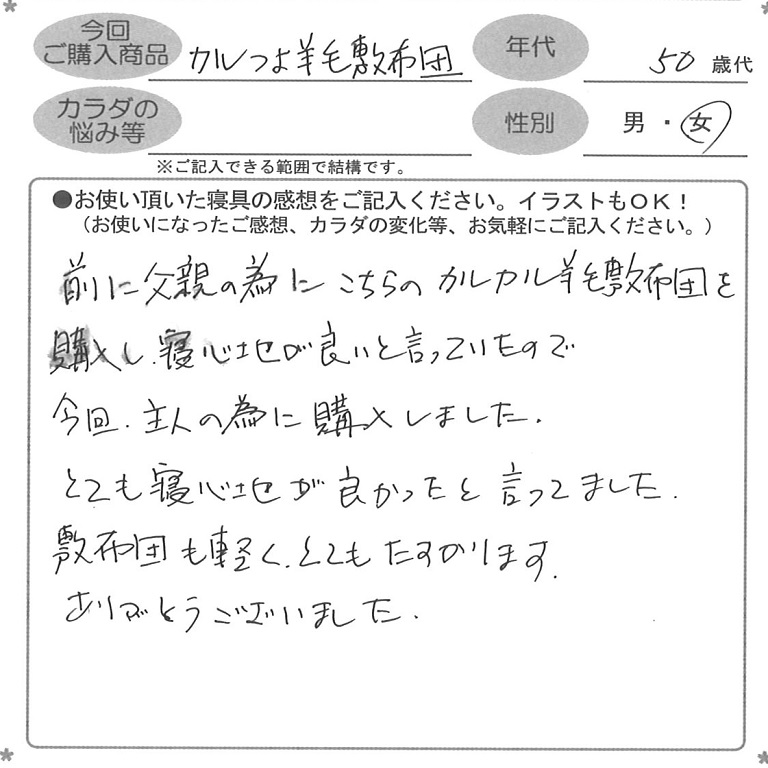 今回
ご購入商品
カルつよ羊毛敷布団
年代
50 歳代
カラダの
悩み等
性別
男・女
※ご記入できる範囲で結構です。
●お使い頂いた寝具の感想をご記入ください。イラストもOK！
（お使いになったご感想、カラダの変化等、お気軽にご記入ください。）
前に父親の為にこちらのカルカル羊毛敷布団を
購入し、寝心地が良いと言っていたので
今回、主人の為に購入しました。
とても寝心地が良かったと言ってました。
敷布団も軽く、とてもたすかります。
ありがとうございました。